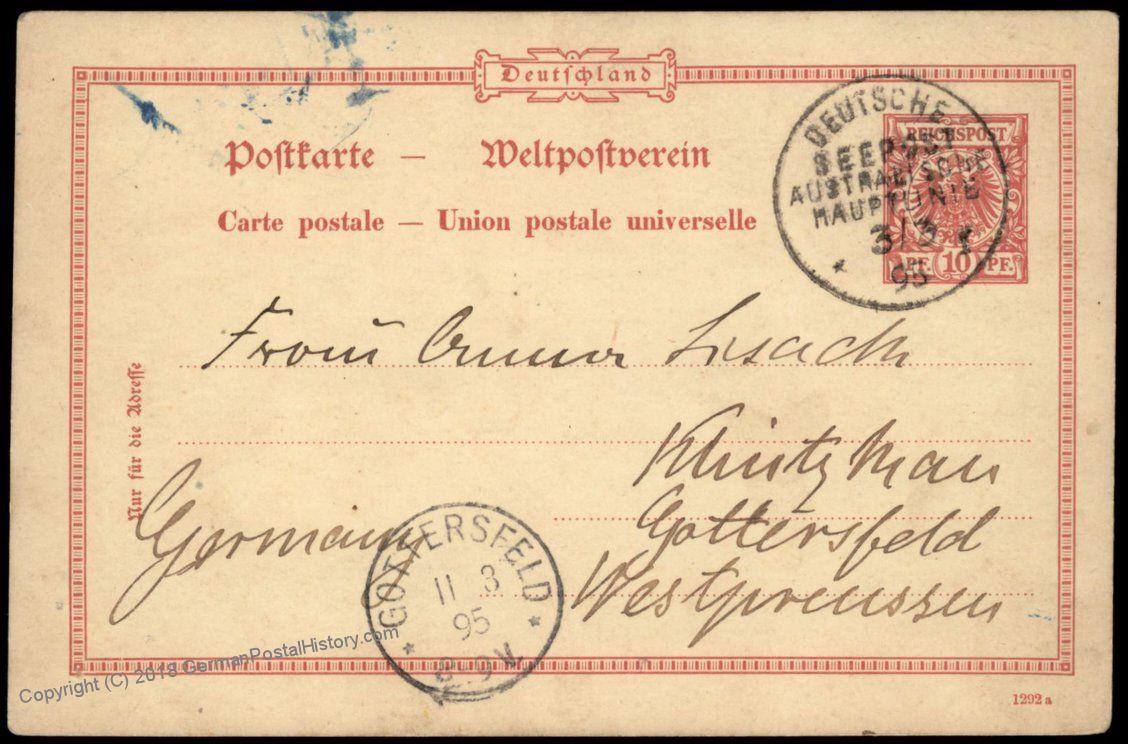 Deutschland
Postkarte — Weltpostverein
Carte postale — Union postale universelle
REICHSPOST
PF. 10 PF.
DEUTSCHE
SEEPOST
AUSTRALISCHE
HAUPTLINIE
3/3
95
Nur für die Adresse
Frau Anna
Gottersfeld
Westpreussen
Germany
GOTTERSFELD
11 3
95
8-9 V.
1292 a
Copyright (C) 2018 GermanPostalHistory.com